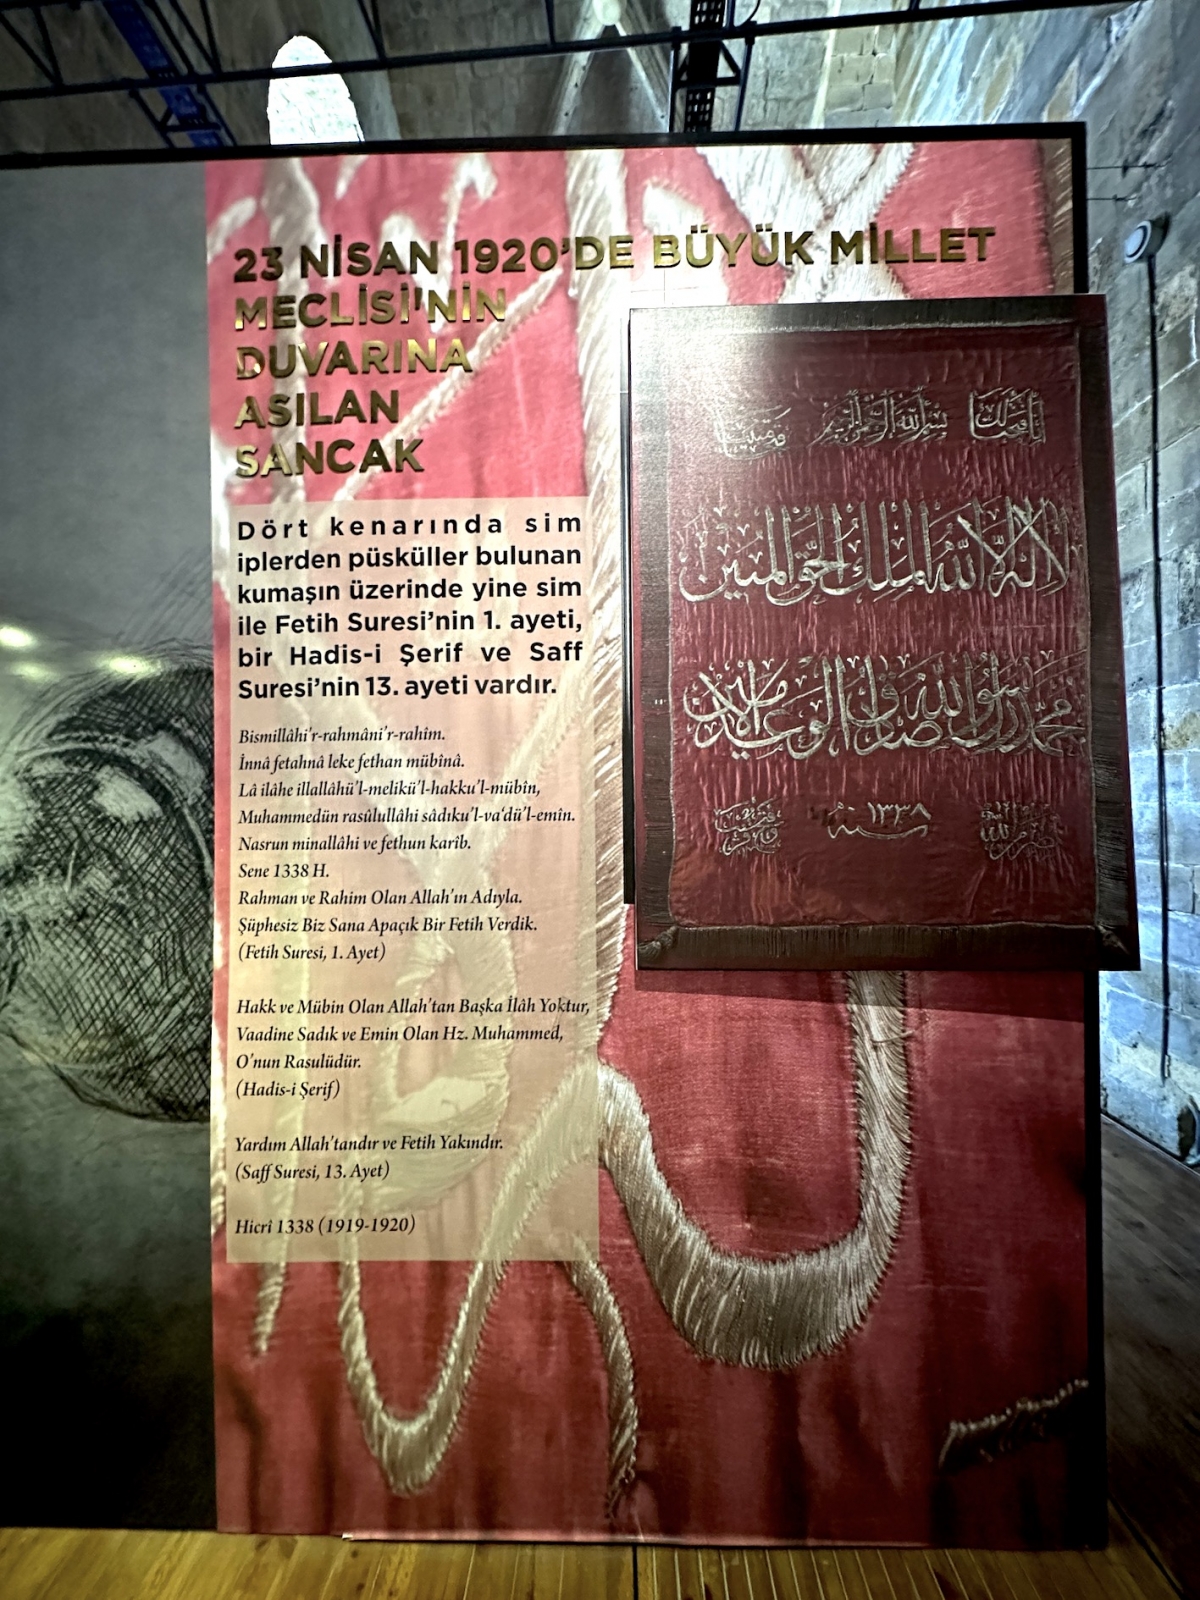 23 NİSAN 1920'DE BÜYÜK MİLLET
MECLİSİ'NİN
DUVARINA
ASILAN
SANCAK
Dört kenarında sim
iplerden püsküller bulunan
kumaşın üzerinde yine sim
ile Fetih Suresi'nin 1. ayeti,
bir Hadis-i Şerif ve Saff
Suresi'nin 13. ayeti vardır.
Bismillâhi'r-rahmâni'r-rahîm.
İnnâ fetahnâ leke fethan mübînâ.
Lâ ilâhe illallâhü'l-melikü'l-hakku'l-mübîn,
Muhammedün rasûlullâhi sâdıku'l-va'dü'l-emîn.
Nasrun minallâhi ve fethun karîb.
Sene 1338 H.
Rahman ve Rahim Olan Allah'ın Adıyla.
Şüphesiz Biz Sana Apaçık Bir Fetih Verdik.
(Fetih Suresi, 1. Ayet)
Hakk ve Mübin Olan Allah'tan Başka İlâh Yoktur,
Vaadine Sadık ve Emin Olan Hz. Muhammed,
O'nun Rasulüdür.
(Hadis-i Şerif)
Yardım Allah'tandır ve Fetih Yakındır.
(Saff Suresi, 13. Ayet)
Hicrî 1338 (1919-1920)
انا فتحنا لك بسم الله الرحمن الرحيم
لا اله الا الله الملك الحق المبين
محمد رسول الله صادق الوعد الامين
نصر من الله سنه ١٣٣٨ وفتح قريب